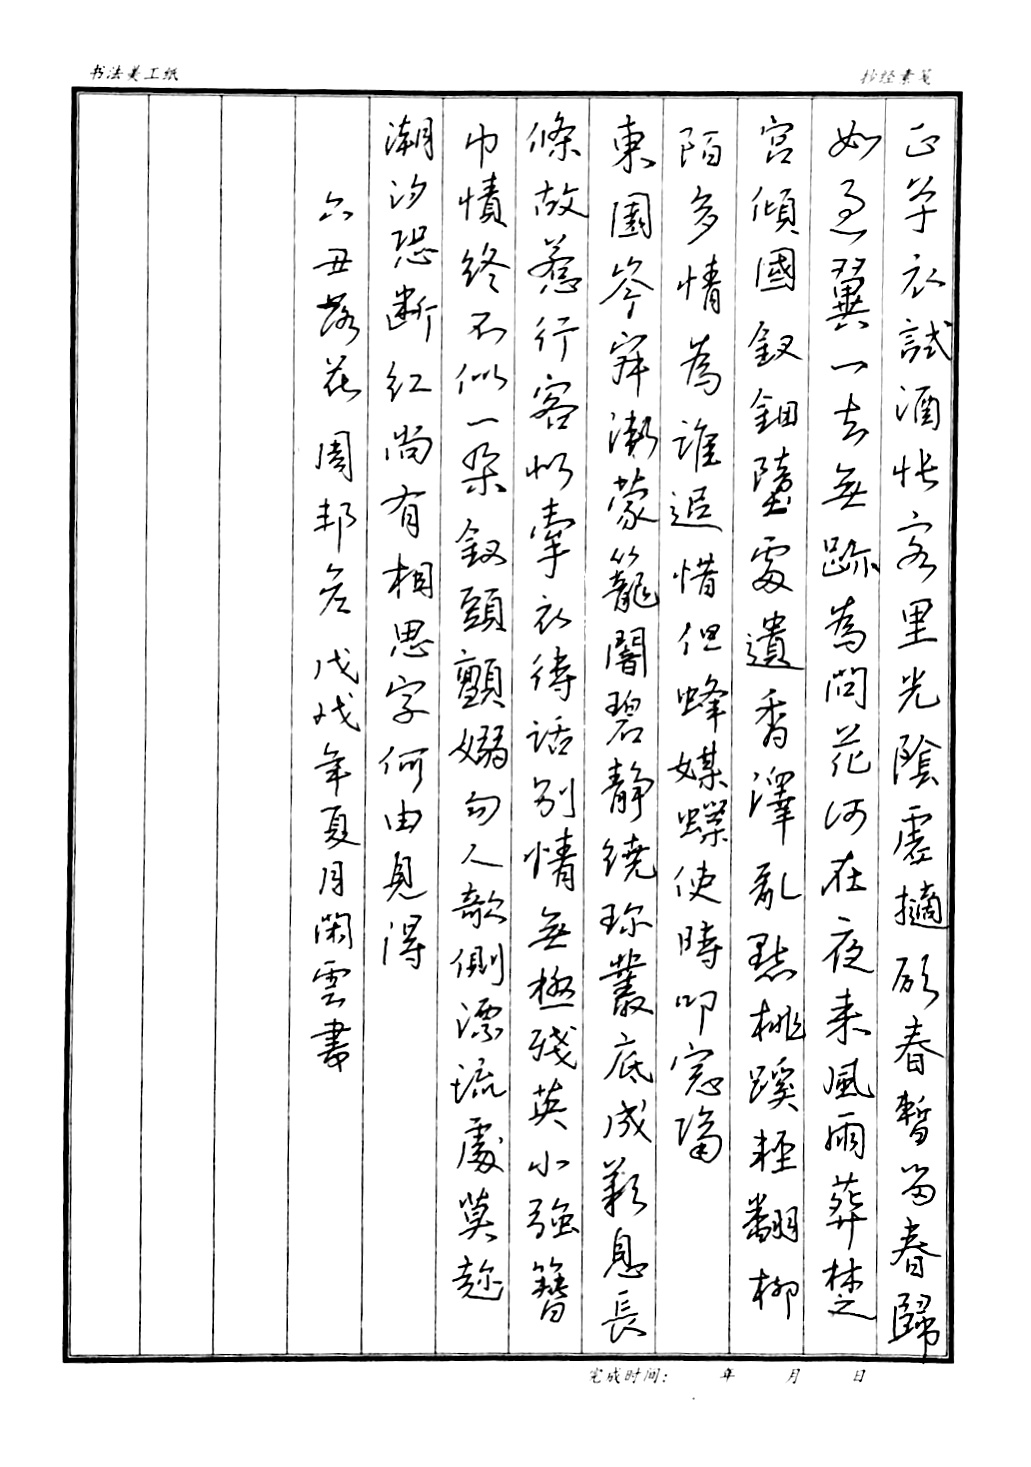 书法美工纸
抄经素笺
正單衣試酒悵客里光陰虛擲願春暫留春歸
如過翼一去無跡為問花何在夜来風雨葬楚
宫傾國釵鈿墮處遺香澤亂點桃蹊輕翻柳
陌多情為誰追惜但蜂媒蝶使時叩窓隔
東園岑寂漸蒙籠闇碧靜繞珍叢底成歎息長
條故惹行客似牽衣待話别情無極殘英小強簪
巾幘終不似一朵釵頭顫嫋向人欹側漂流處莫趁
潮汐恐断红尚有相思字何由見得
六丑落花 周邦彦 戊戌年夏月閑雲書
完成时间： 年 月 日